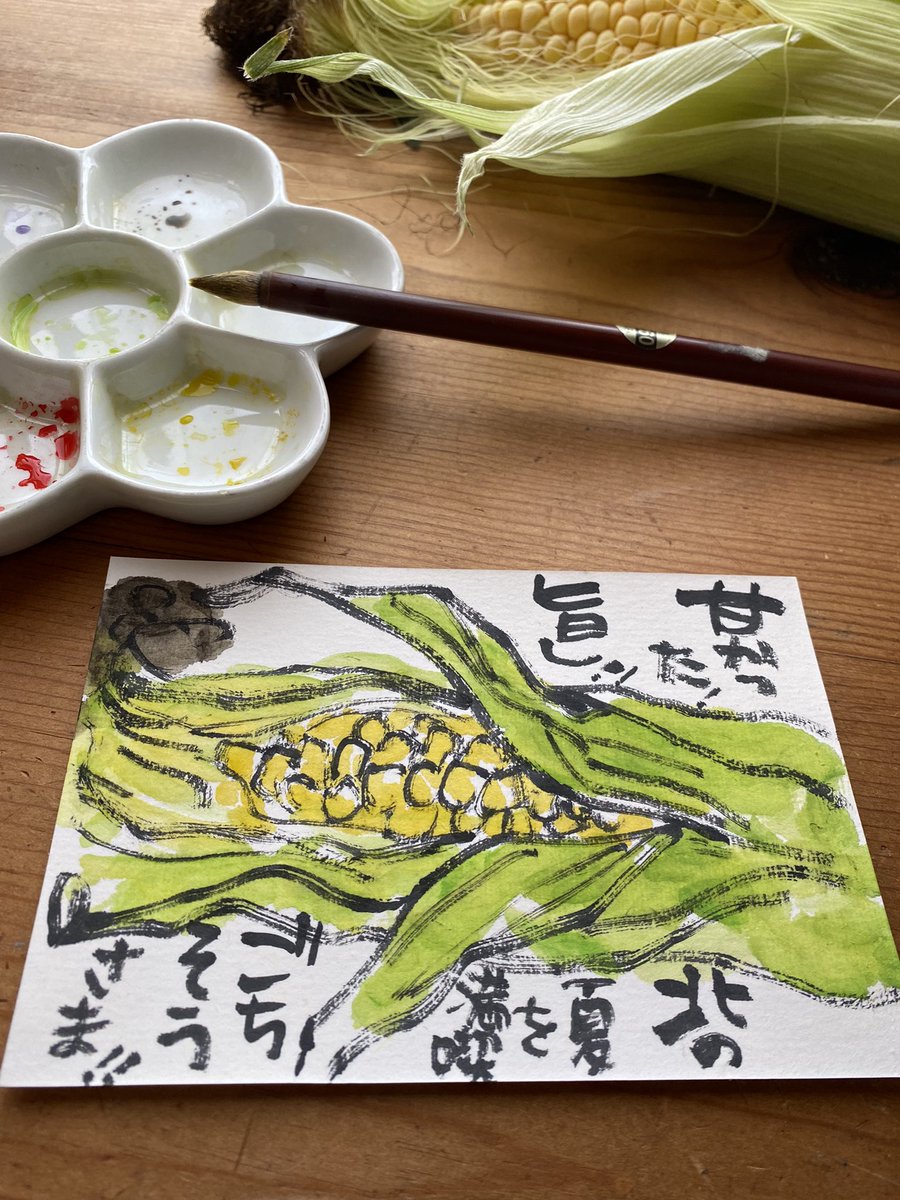 甘かっ
た!
旨し!!
北の
夏
を
満喫
ごち
そう
さま!!